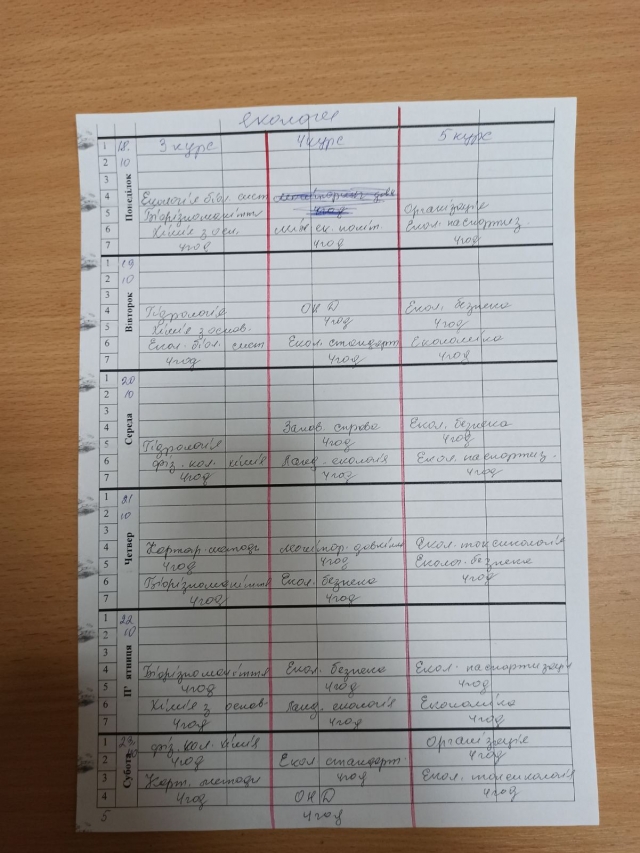 екологія
1 18. 3 курс 4 курс 5 курс
2 10
3
Понеділок
4 Екологія біол. сист
5 Біорізноманіття Організація
6 Хімія з осн. Між. ек. політ. Екол. паспортиз.
7 4год 4год 4год
1 19
2 10
3
Вівторок
4 Гідрологія ОНД Екол. безпека
5 Хімія з основ. 4год 4год
6 Екол. біол. сист Екол. стандарт Економіка
7 4год 4год 4год
1 20
2 10
3
Середа
4 Запов. справа Екол. безпека
5 Гідрологія 4год 4год
6 Фіз. кол. хімія Ланд. екологія Екол. паспортиз.
7 4год 4год 4год
1 21
2 10
3
Четвер
4 Картогр. методи Монітор. довкілля Екол. токсикологія
5 4год 4год Еколог. безпека
6 Біорізноманіття Екол. безпека 4год
7 4год 4год
1 22
2 10
3
П'ятниця
4 Біорізноманіття Екол. безпека Екол. паспортизація
5 4год 4год 4год
6 Хімія з основ Ланд. екологія Економіка
7 4год 4год 4год
Субота
1 23 Фіз. кол. хімія Організація
2 10 4год Екол. стандарт. 4год
3 Карт. методи 4год Екол. токсикологія
4 4год ОНД 4год
5 4год